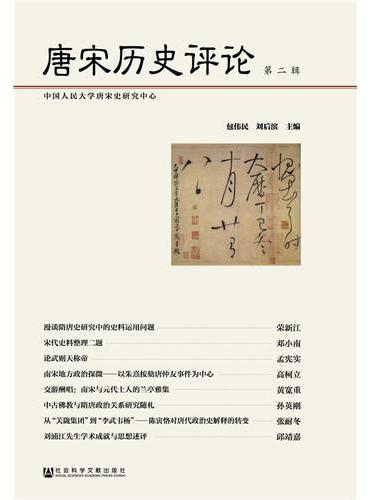 唐宋历史评论 第二辑
中国人民大学唐宋史研究中心
包伟民 刘后滨 主编
大历丁巳冬
漫谈隋唐史研究中的史料运用问题 荣新江
宋代史料整理二题 邓小南
论武则天称帝 孟宪实
南宋地方政治探微——以朱熹按劾唐仲友事件为中心 高柯立
交游酬唱：南宋与元代士人的兰亭雅集 黄宽重
中古佛教与隋唐政治关系研究随札 孙英刚
从“关陇集团”到“李武韦杨”——陈寅恪对唐代政治史解释的转变 张耐冬
刘浦江先生学术成就与思想述评 邱靖嘉
社会科学文献出版社
SOCIAL SCIENCES ACADEMIC PRESS (CHINA)